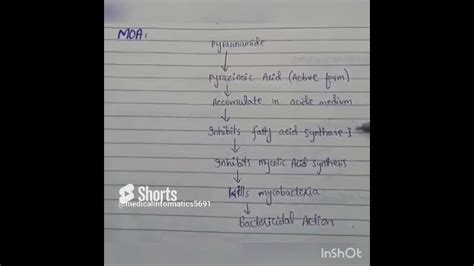 MOA:
Pyrazinamide
Pyrazinoic Acid (Active form)
Accumulate in acidic medium
Inhibits fatty acid synthase-I
Inhibits mycolic Acid synthesis
Kills mycobacteria
Bactericidal Action
Shorts
@medicalinformatics5691
InShOt